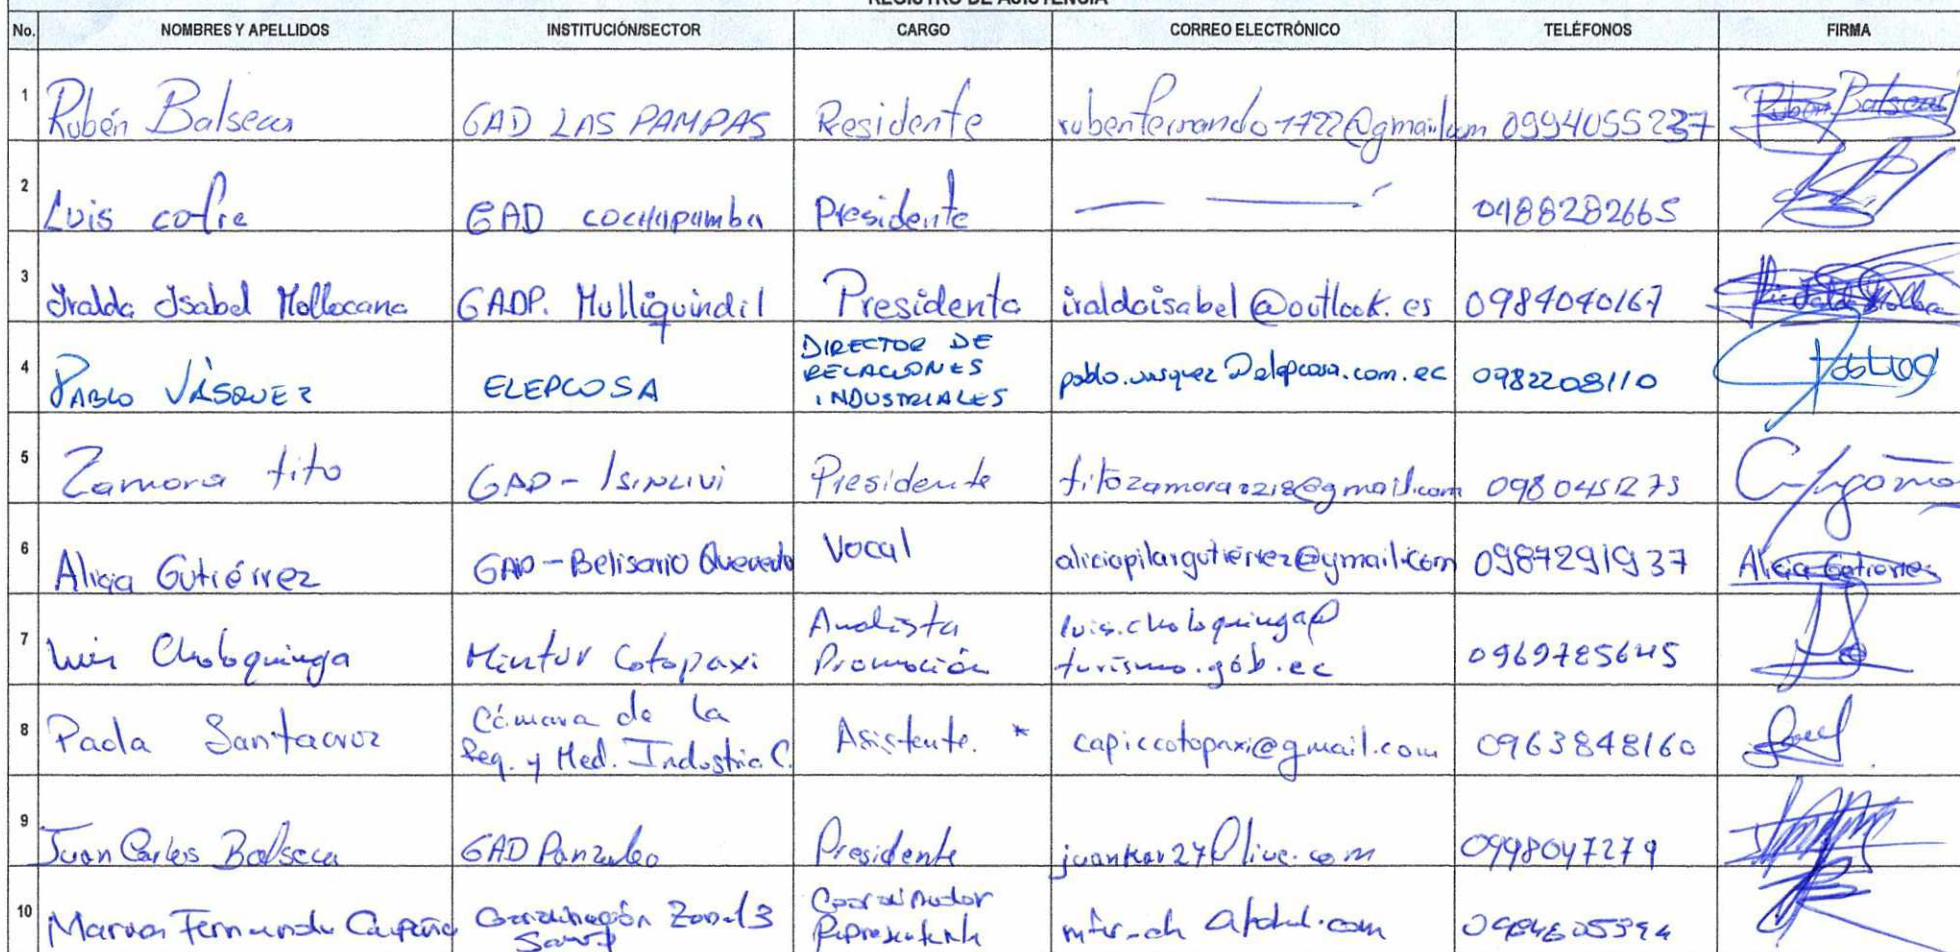 REGISTRO DE ASISTENCIA
No. NOMBRES Y APELLIDOS INSTITUCIÓN/SECTOR CARGO CORREO ELECTRÓNICO TELÉFONOS FIRMA
1 Rubén Balseca GAD LAS PAMPAS Presidente rubenfernando1722@gmail.com 0994055237 Rubén Balseca
2 Luis cofre GAD cochapamba Presidente 0988282665
3 Iralda Isabel Mollocana GADP. Mulliquindil Presidenta iraldaisabel@outlook.es 0984040167
4 PABLO VÁSQUEZ ELEPCOSA DIRECTOR DE RELACIONES INDUSTRIALES pablo.vasquez@elepcosa.com.ec 0982208110
5 Zamora tito GAD - ISINLIVI Presidente 0980451273
6 Alicia Gutiérrez GAD - Belisario Quevedo Vocal aliciapilargutierrez@gmail.com 0987291937 Alicia Gutierrez
7 Luis Choloquinga Mintur Cotopaxi Analista Promoción luis.choloquinga@turismo.gob.ec 0969785645
8 Paola Santacruz Cámara de la Peq. y Med. Industria C. Asistente. * capiccotopaxi@gmail.com 0963848160
9 Juan Carlos Balseca GAD Panzaleo Presidente juankar27@live.com 0998047279
10 Fernando Coordinación Zonal 3 Coordinador